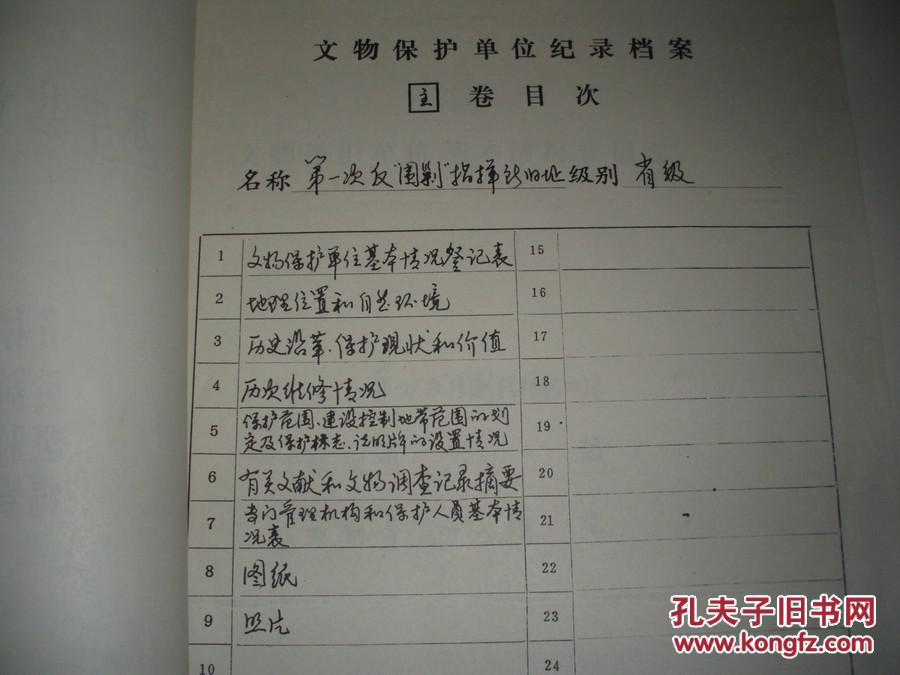 文物保护单位纪录档案
主 卷目次
名称 第一次反"围剿"指挥所旧址 级别 省级
1 文物保护单位基本情况登记表 15
2 地理位置和自然环境 16
3 历史沿革、保护现状和价值 17
4 历次维修情况 18
5 保护范围、建设控制地带范围的划
定及保护标志、说明牌的设置情况 19
6 有关文献和文物调查记录摘要 20
7 专门管理机构和保护人员基本情
况表 21
8 图纸 22
9 照片 23
10 24
孔夫子旧书网
www.kongfz.com